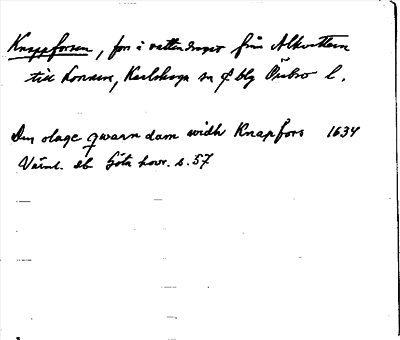 Knappforsen, fors i vattendraget från Alkvettern
till Lonnen, Karlskoga sn & blg Örebro l.
Den olage qwarn dam widh Knapfors 1634
Värml. db Göta hovr. s. 57